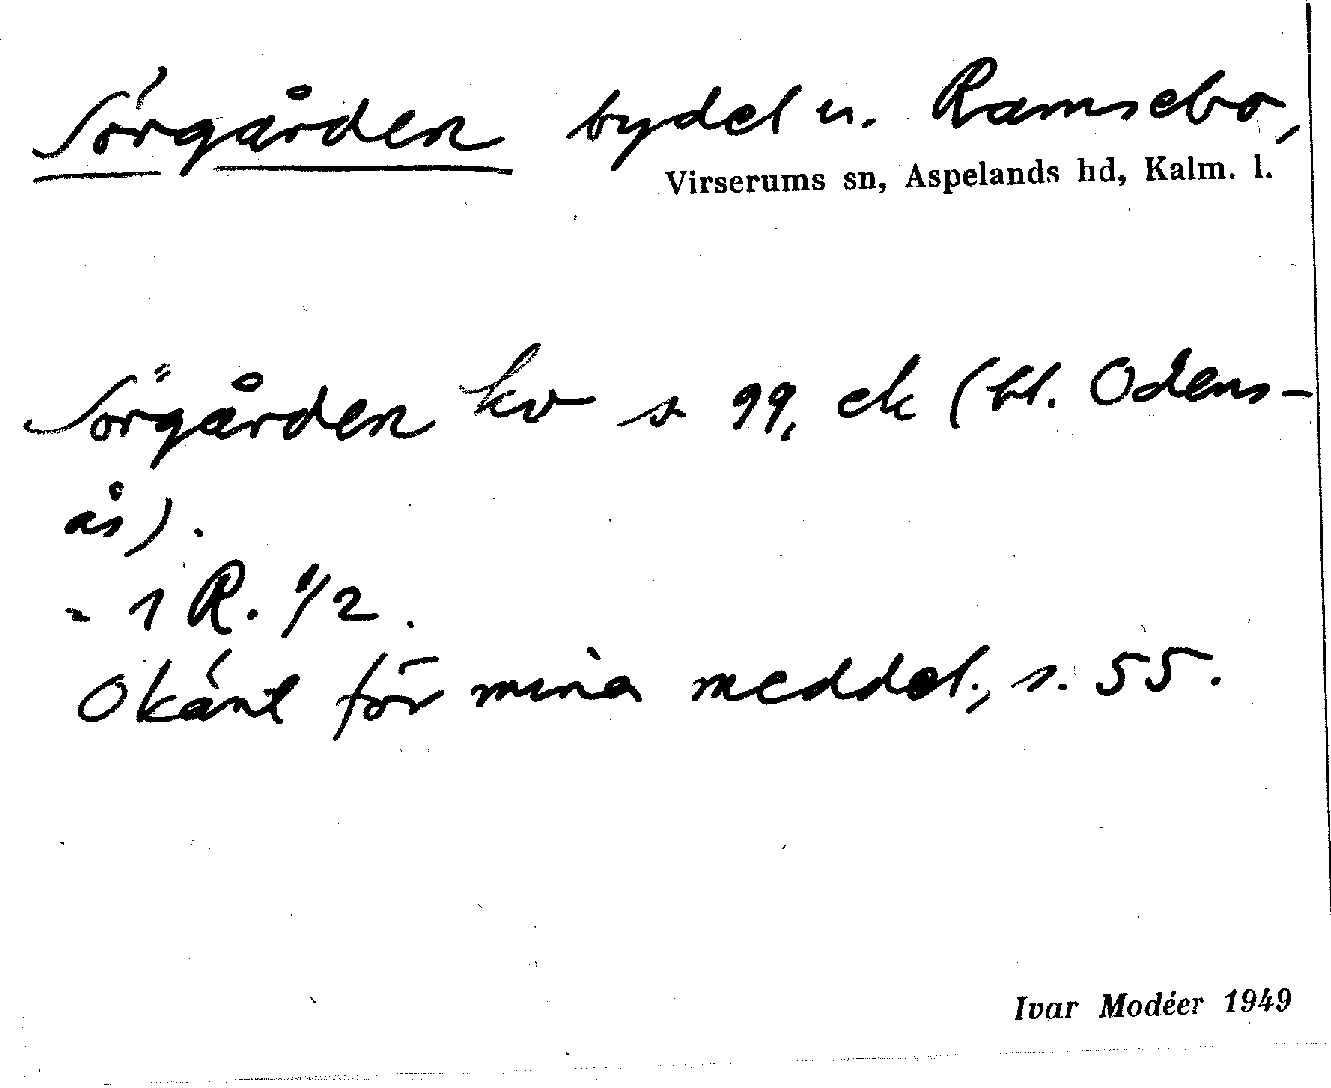 Sörgården bydel u. Ramsebo,
Virserums sn, Aspelands hd, Kalm. l.
Sörgården kv s 99, ek (bl. Odens-
ås).
= 1 R. 1/2.
Okänt för mina meddel., s. 55.
Ivar Modéer 1949